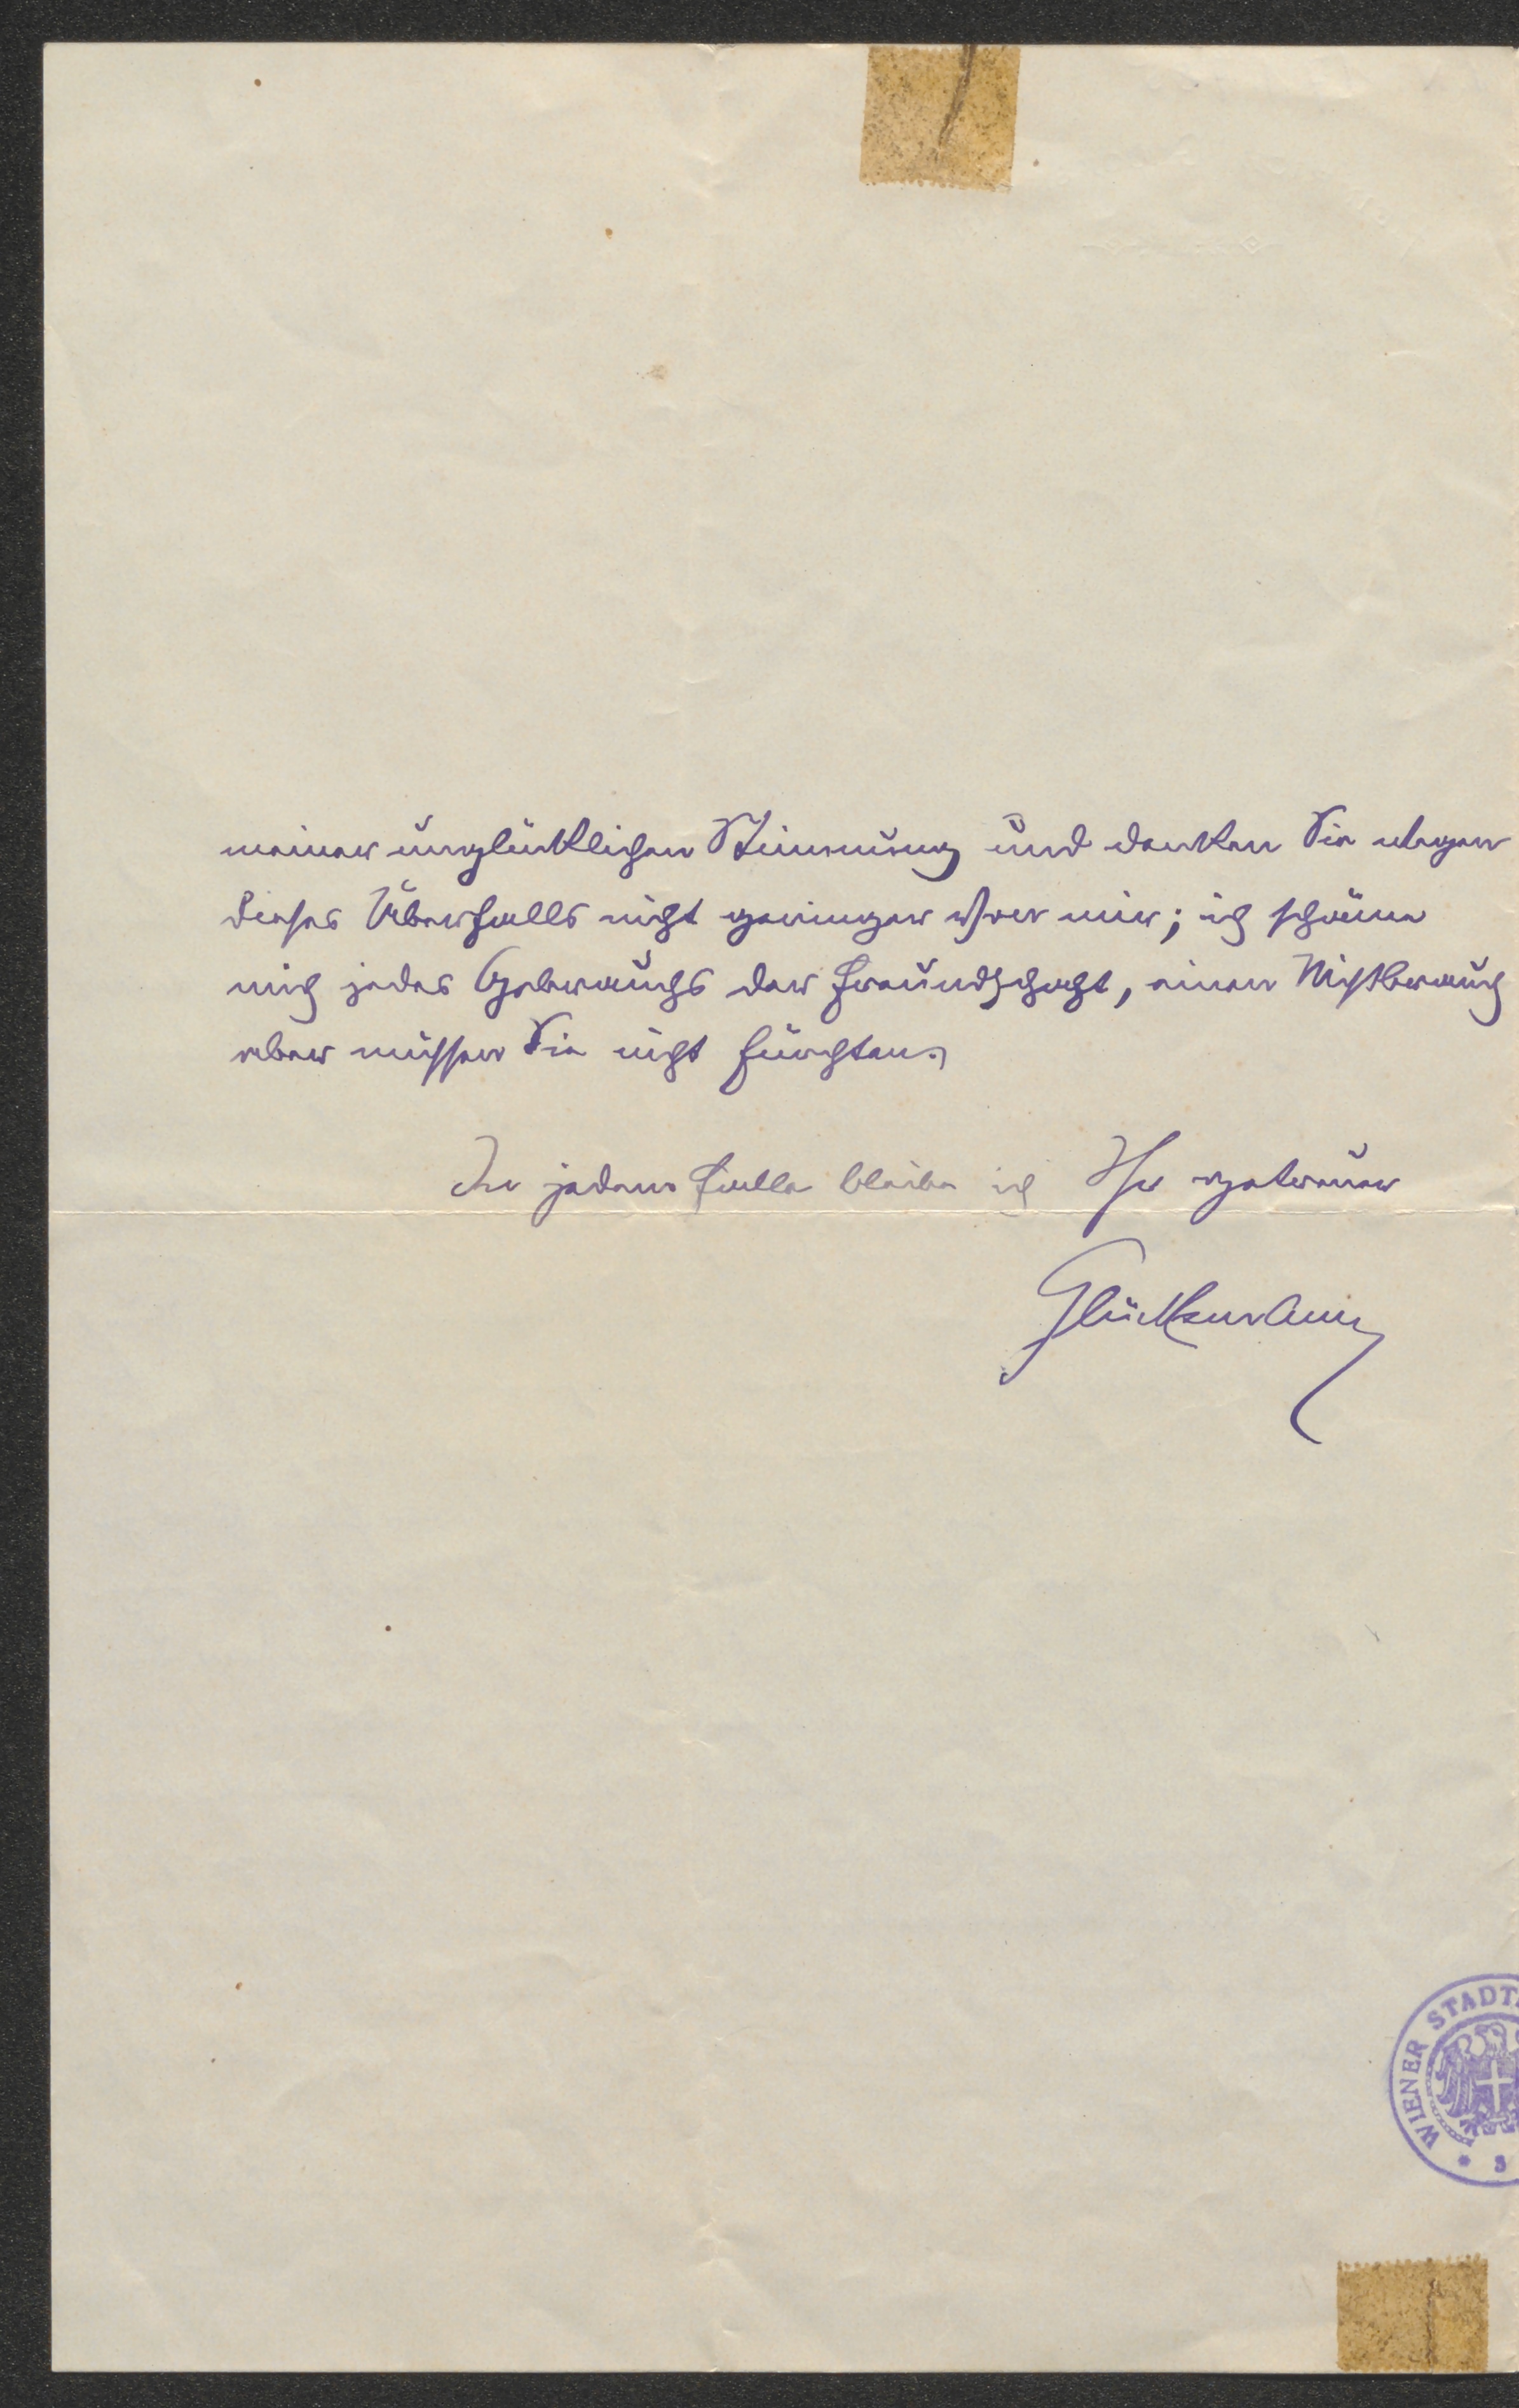 meiner unglücklichen Stimmung und denken Sie wegen
dieses Überfalls nicht geringer von mir; ich schäme
mich jedes Gebrauchs der Freundschaft, einen Mißbrauch
aber müssen Sie nicht fürchten.
In jedem Falle bleibe ich Ihr getreuer
Glücksmann
WIENER STADT